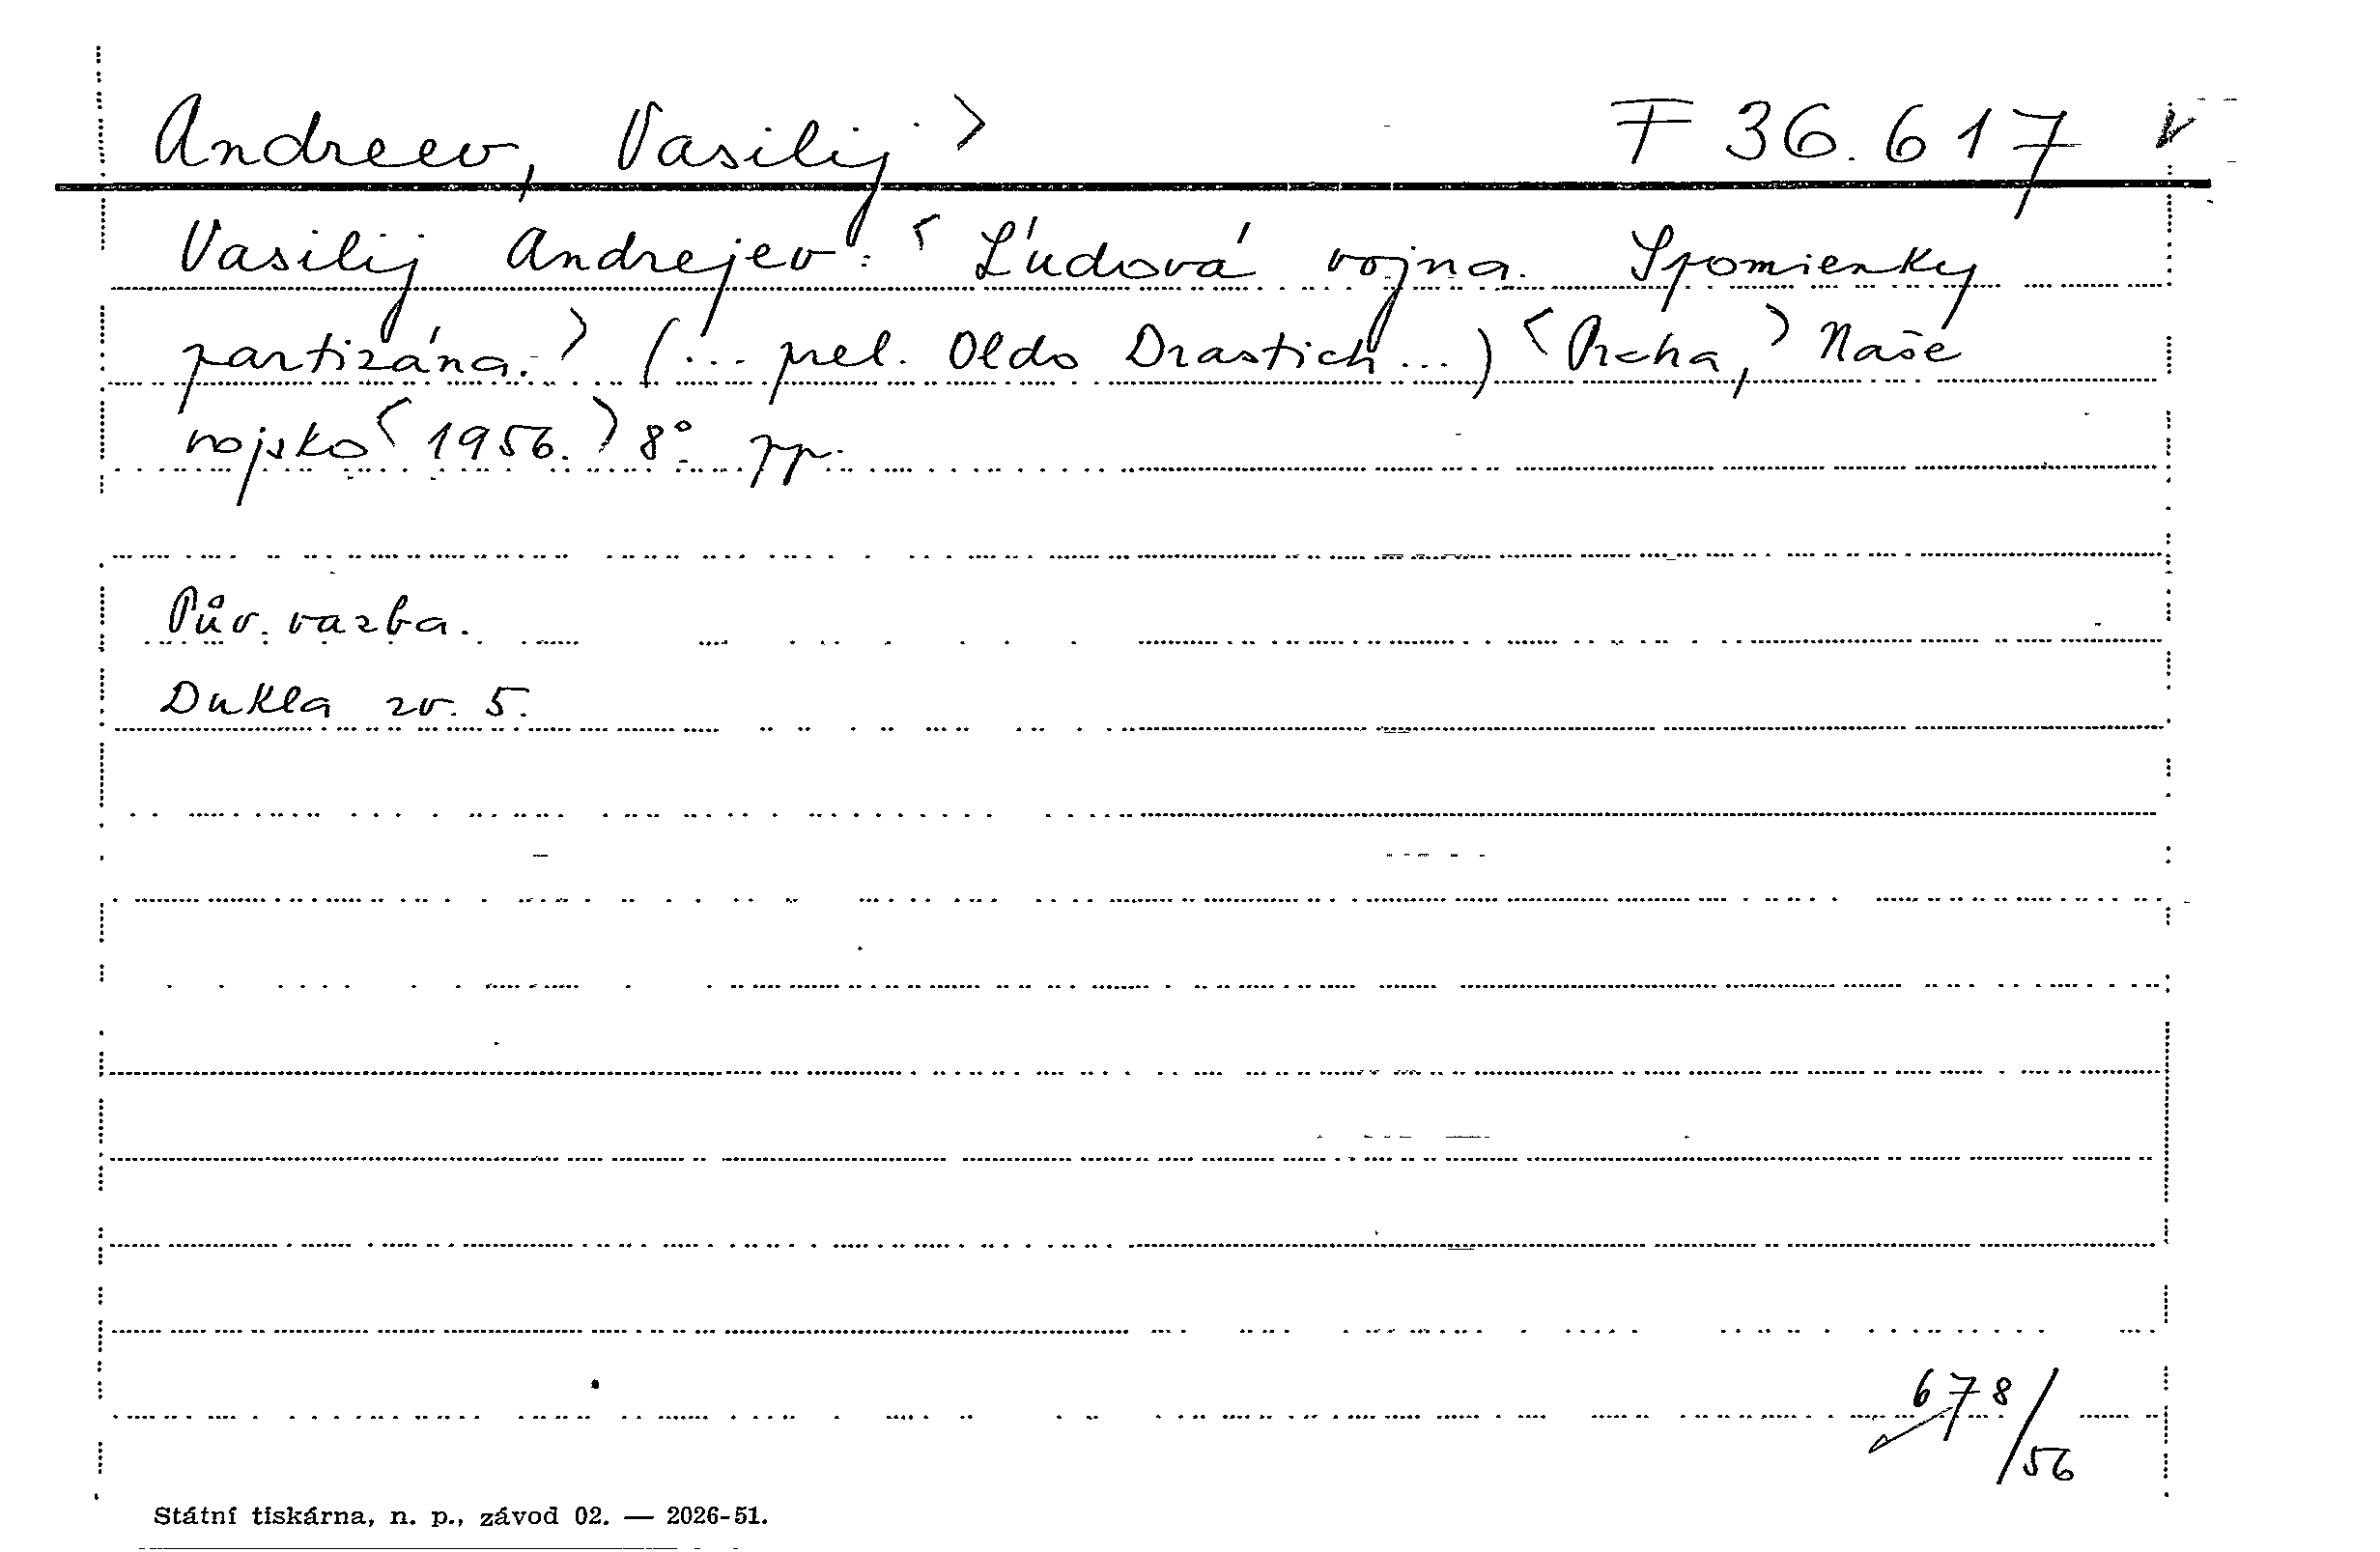 Andreev, Vasilij > F 36.617 V
Vasilij Andrejev: < Ľudová vojna. Spomienky
partizána. > (... prel. Oldo Drastich ...) < Praha, > Naše
vojsko < 1956. > 8° pp.
Pův. vazba.
Dukla zv. 5.
678/56
Státní tiskárna, n. p., závod 02. — 2026-51.